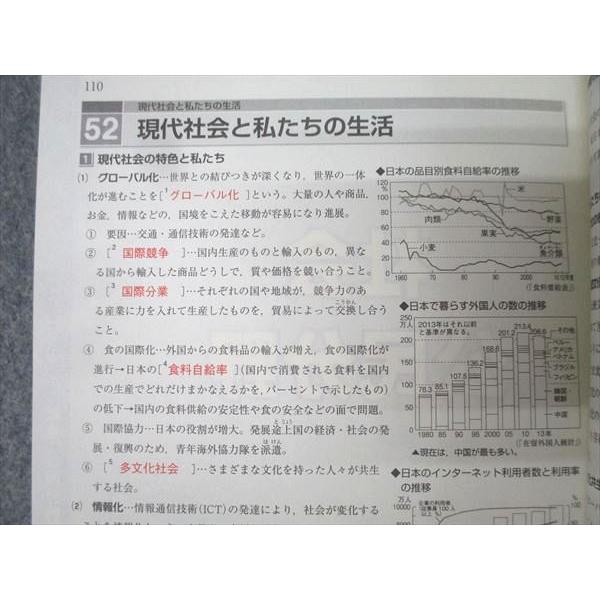 110
現代社会と私たちの生活
52 現代社会と私たちの生活
1 現代社会の特色と私たち
(1) グローバル化…世界との結びつきが深くなり，世界の一体
化が進むことを[¹グローバル化 ]という。大量の人や商品，
お金，情報などの，国境をこえた移動が容易になり進展。
① 要因…交通・通信技術の発達など。
② [² 国際競争 ]…国内生産のものと輸入のもの，異な
る国から輸入した商品どうしで，質や価格を競い合うこと。
③ [³ 国際分業 ]…それぞれの国や地域が，競争力のあ
る産業に力を入れて生産したものを，貿易によって交換し合う
こうかん
こと。
④ 食の国際化…外国からの食料品の輸入が増え，食の国際化が
進行→日本の[⁴食料自給率 ](国内で消費される食料を国内
での生産でどれだけまかなえるかを，パーセントで示したもの)
の低下→国内の食料供給の安定性や食の安全などの面で問題。
⑤ 国際協力…日本の役割が増大。発展途上国の経済・社会の発
とじょう
展・復興のため，青年海外協力隊を派遣。
はけん
⑥ [⁵ 多文化社会 ]…さまざまな文化を持った人々が共生
する社会。
(2) 情報化…情報通信技術(ICT)の発達により，社会が変化する
◆日本の品目別食料自給率の推移
120
%
100
80
60
40
20
0
米
野菜
肉類
果実
小麦
魚介類
1960
70
80
90
2000
(「食料需給表」)
◆日本で暮らす外国人の数の推移
250
万人
200
150
100
50
0
2013年はそれ以前
と基準が異なる。
78.3
85.1
107.5
136.2
168.6
201.2
213.4
206.6
その他
ペルー
アメリカ
ベトナム
ブラジル
フィリピン
韓国・
朝鮮
中国
1980 85 90 95 2000 05 10 13年
(「在留外国人統計」)
▲現在は，中国が最も多い。
◆日本のインターネット利用者数と利用率
の推移
万人
10000
8000
企業の利用率
%
100
80